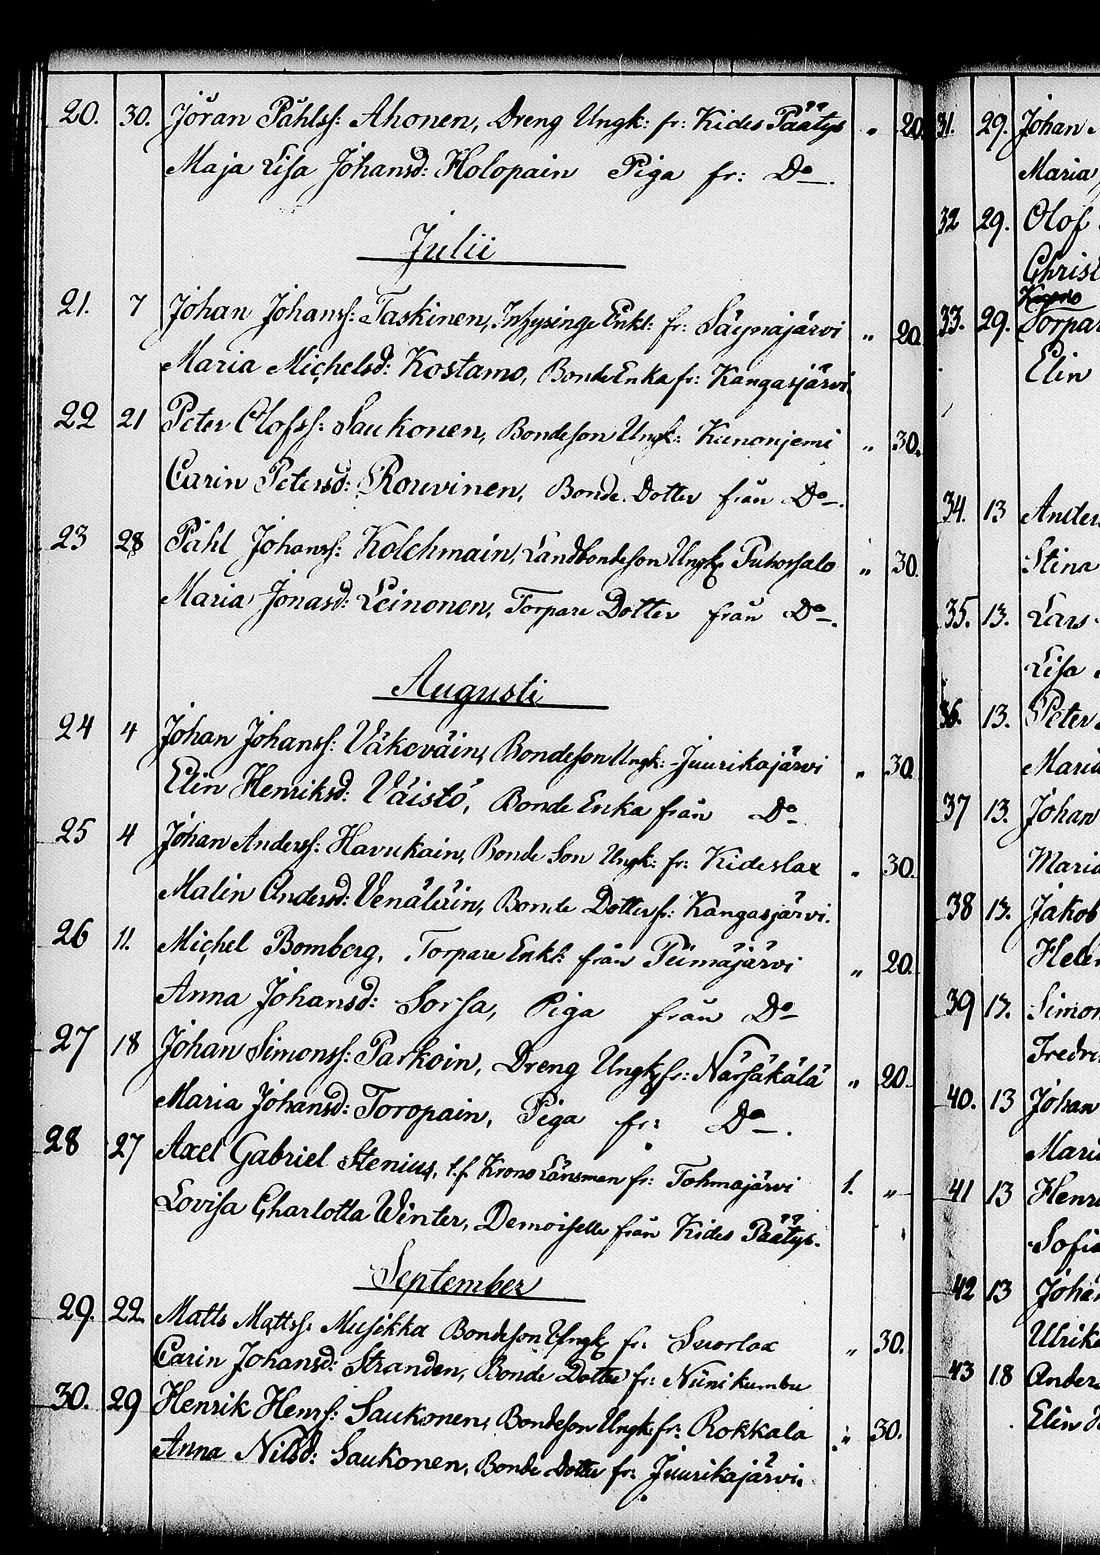 20. 30. Jöran Påhlss: Ahonen, Dreng Ungk: fr: Kides Päätys „ 20.
Maja Lisa Johansd: Holopain Piga fr: Do.
Julii
21. 7 Johan Johanss: Taskinen, Inhysinge Enkl: fr: Säynäjärvi „ 20.
Maria Michelsd: Kostamo, Bonde Enka fr: Kangasjärvi.
22 21 Peter Olofss: Saukonen, Bondeson Ungk: Kunonjemi „ 30.
Carin Petersd: Rouvinen, Bonde Dotter från Do.
23 28 Påhl Johanss: Kolehmain, Landbondeson Ungk: Puhossalo „ 30.
Maria Jonasd: Leinonen, Torpare Dotter från Do.
Augusti
24 4 Johan Johanss: Väkeväin, Bondeson Ungk: Juurikajärvi „ 30.
Elin Henriksd: Väistö, Bonde Enka från Do
25 4 Johan Anderss: Havukain, Bonde Son Ungk: fr: Kideslax „ 30.
Malin Andersd: Venäläin, Bonde Dotter fr: Kangasjärvi.
26 11. Michel Bomberg, Torpare Enkl: från Piimäjärvi „ 20.
Anna Johansd: Sorsa, Piga från Do
27 18 Johan Simonss: Parkoin, Dreng Ungk: fr: Närsäkälä „ 20.
Maria Johansd: Toropain, Piga fr: Do.
28 27 Axel Gabriel Stenius, t.f. Krono Länsman fr: Tohmajärvi 1. „
Lovisa Charlotta Winter, Demoiselle från Kides Päätys.
September
29. 22. Matts Mattss: Musikka Bondeson Ungk: fr: Suorlax „ 30.
Carin Johansd: Stranden, Bonde Dotter fr: Niinikumbu
30. 29 Henrik Henrss: Saukonen, Bondeson Ungk: fr: Rokkala „ 30.
Anna Nilsd: Saukonen, Bonde Dotter fr: Juurikajärvi.
31. 29. Johan
Maria
32 29. Olof
33. 29. Torpar
Elin
34. 13
Stina
35. 13. Lars
Lisa
36. 13. Peter
37 13. Johan
38 13. Jakob
39 13. Simon
40. 13 Johan
41 13
Sofia
42 13 Johan
43 18
Elin